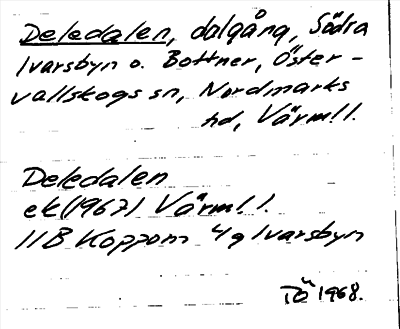 Deledalen, dalgång, Södra
Ivarsbyn o. Bottner, Öster-
vallskogs sn, Nordmarks
hd, Värml l.
Deledalen
ek (1967) Värml l.
11B Koppom 4g Ivarsbyn
TÖ 1968.